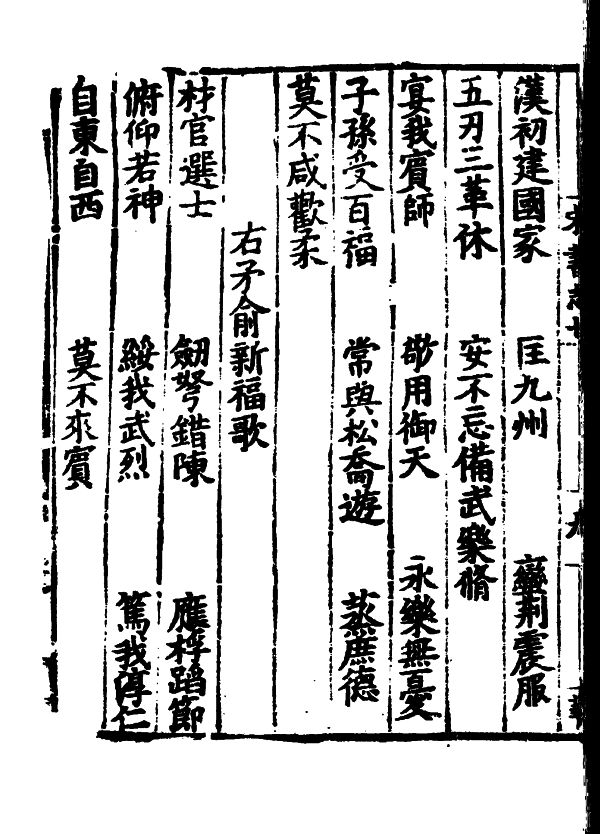 漢初建國家　匡九州　蠻荆震服
五刃三革休　安不忘備武樂脩
宴我賓師　敬用御天　永樂無憂
子孫受百福　常與松喬遊　蒸庶德
莫不咸歡柔
右矛俞新福歌
材官選士　劒弩錯陳　應桴蹈節
俯仰若神　綏我武烈　篤我淳仁
自東自西　莫不來賓